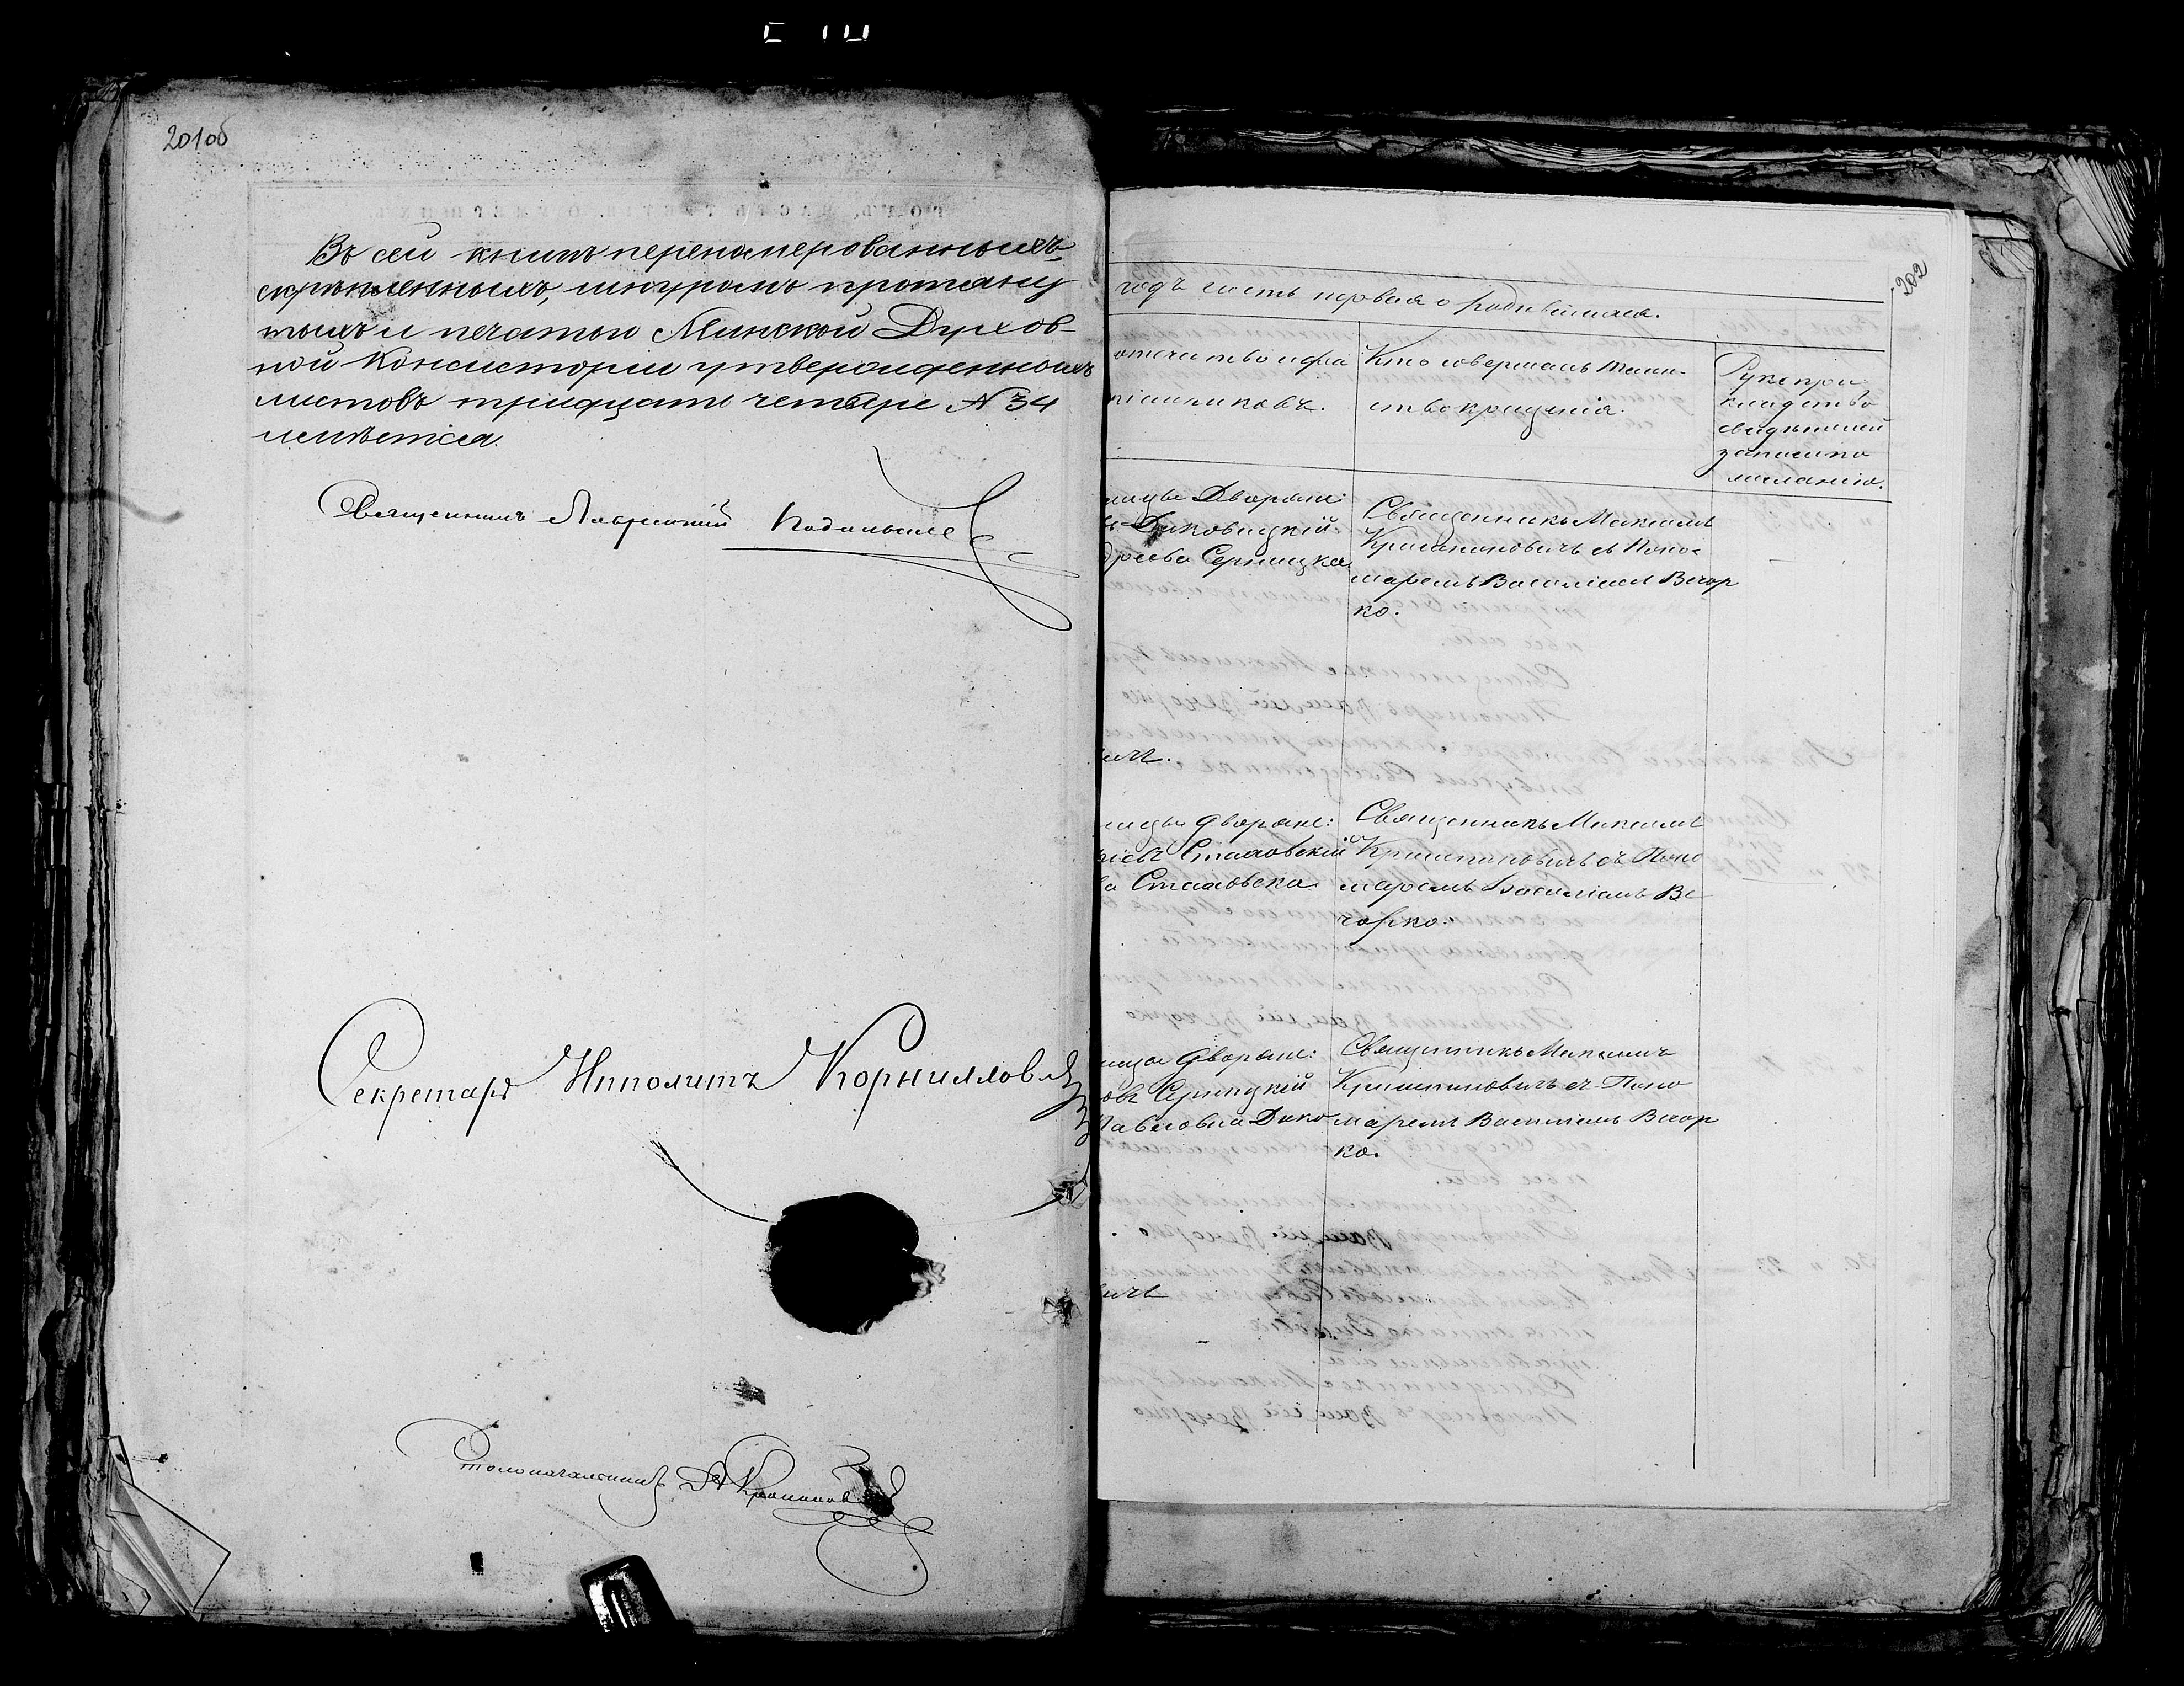 201об
Въ сей книгѣ перенумерованныхъ,
скрѣпленныхъ, шнуромъ протяну
тыхъ и печатью Минской Духов-
ной Консисторіи утвержденныхъ
листовъ тридцать четыре № 34
имѣется.
Священникъ
Секретарь Ипполитъ Корнилловъ
Столоначальникъ
202
годъ часть первая о родившихся.
отчество и фа
Кто совершалъ таин-
ство крещенія.
Рукопри-
кладство
свидѣтелей
записи по
желанію.
Дворяне:
Диковицкій
Серницка
Священникъ Максимъ
Кришпиновичъ съ Поно-
маремъ Василіемъ Вечор
ко.
ичъ.
дворяне:
Стаховскій
Стаховска
Священникъ Максимъ
Кришпиновичъ съ Поно
маремъ Василіемъ Ве
чорко.
дворяне:
овъ Серницкій
Павловна Дико
Священникъ Максимъ
Кришпиновичъ съ Поно
маремъ Василіемъ Вечор
ко.
вичъ